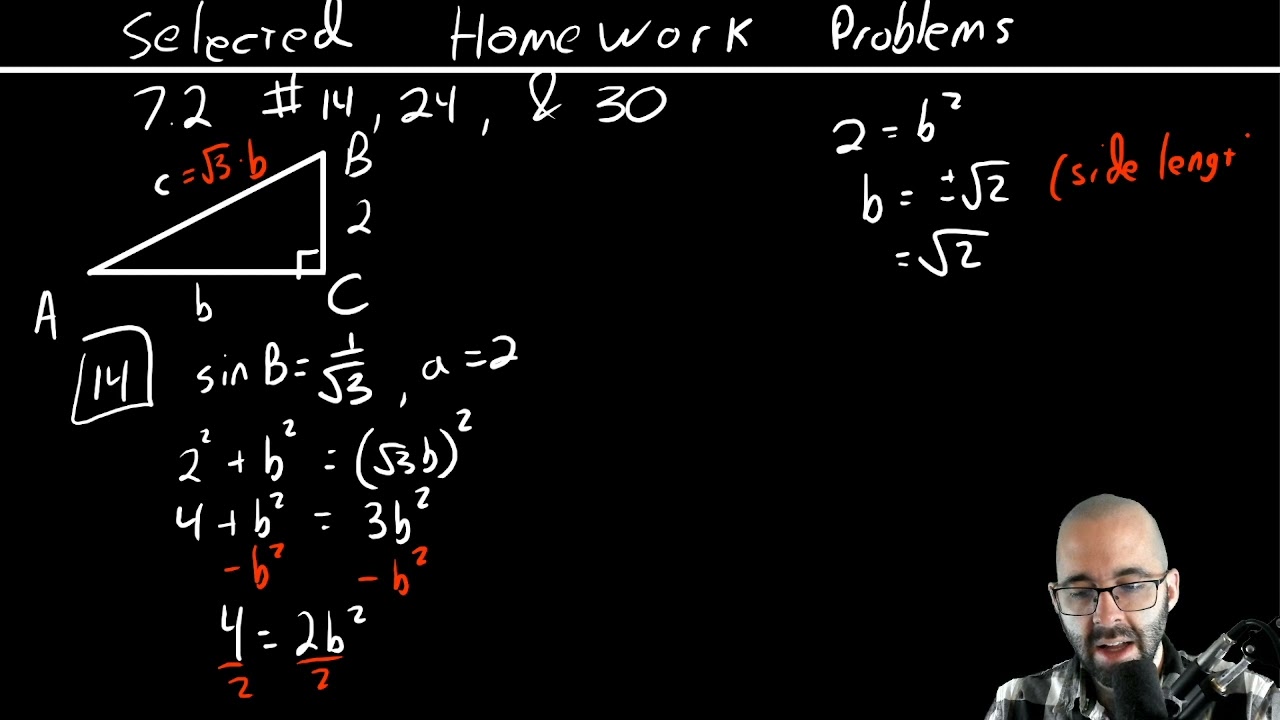 Selected Homework Problems
7.2 #14, 24, & 30
c = √3·b
B
2
A
b
C
14
sin B = 1/√3, a = 2
2² + b² = (√3b)²
4 + b² = 3b²
- b² - b²
4 = 2b²
2 2
2 = b²
b = ±√2 (side lengt
= √2